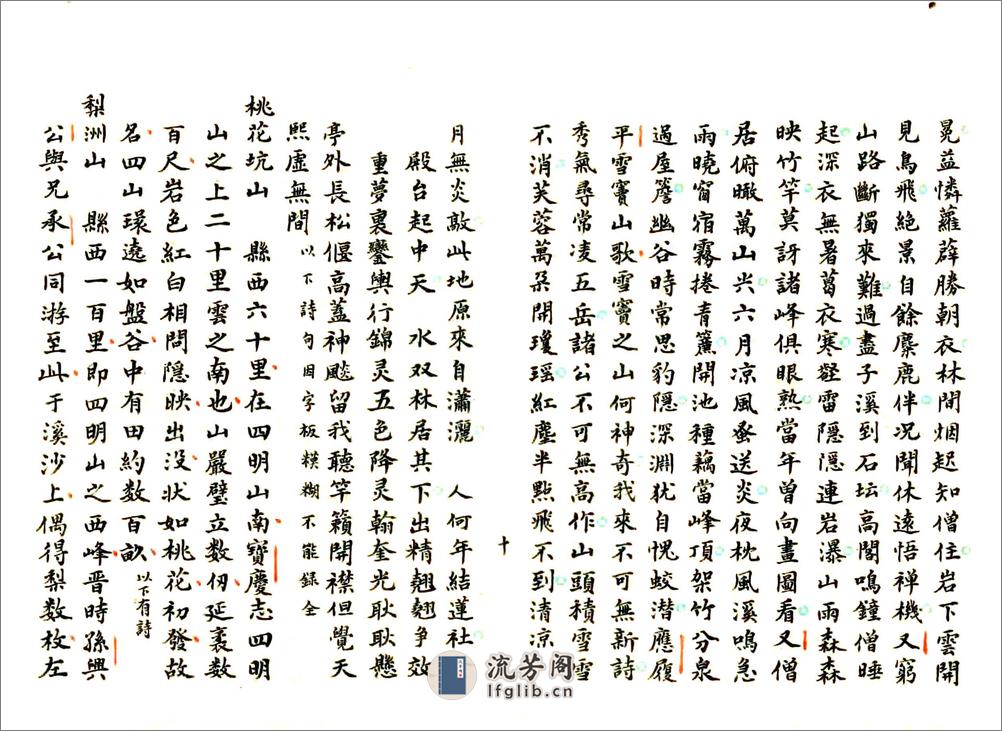 晃益憐蘿薜勝朝衣林間烟起知僧住岩下雲開
見鳥飛絕景自餘麋鹿伴況聞休遠悟禅機又窮
山路斷獨來難過盡子溪到石坛高閣鳴鐘僧睡
起深衣無暑葛衣寒經雷隠隠連岩瀑山雨森森
映竹竿莫訝諸峰俱眼熟當年曽向畫圖看又僧
居俯瞰萬山尖六月凉風蚤送炎夜枕風溪鳴急
雨曉窗宿霧捲青簾開池種藕當峰頂架竹分泉
過屋簷幽谷時常思豹隠深淵犹自愧蛟潜應履
平雪竇山歌雪竇之山何神奇我來不可無新詩
秀氣尋常凌五岳諸公不可無高作山頭積雪雪
不消芙蓉萬朵開瓊瑶紅塵半點飛不到清凉
十
月無炎敲此地原來自瀟灑 人何年結蓮社
殿台起中天 水双林居其下出精翹翹争效
重夢裏鑾輿行錦灵五色降灵翰奎光耿耿懸
亭外長松偃高蓋神飈留我聽竿籟開襟但覺天
熙虚無間以下詩句因字板模糊不能録全
桃花坑山 縣西六十里在四明山南寶慶志四明
山之上二十里雲之南也山嚴壁立数仭延袤数
百尺岩色紅白相間隠映出没状如桃花初發故
名四山環遶如盤谷中有田約数百畝以下有詩
梨洲山 縣西一百里即四明山之西峰晋時孫興
公與兄承公同游至此于溪沙上偶得梨数枚左
流芳阁
lfglib.cn